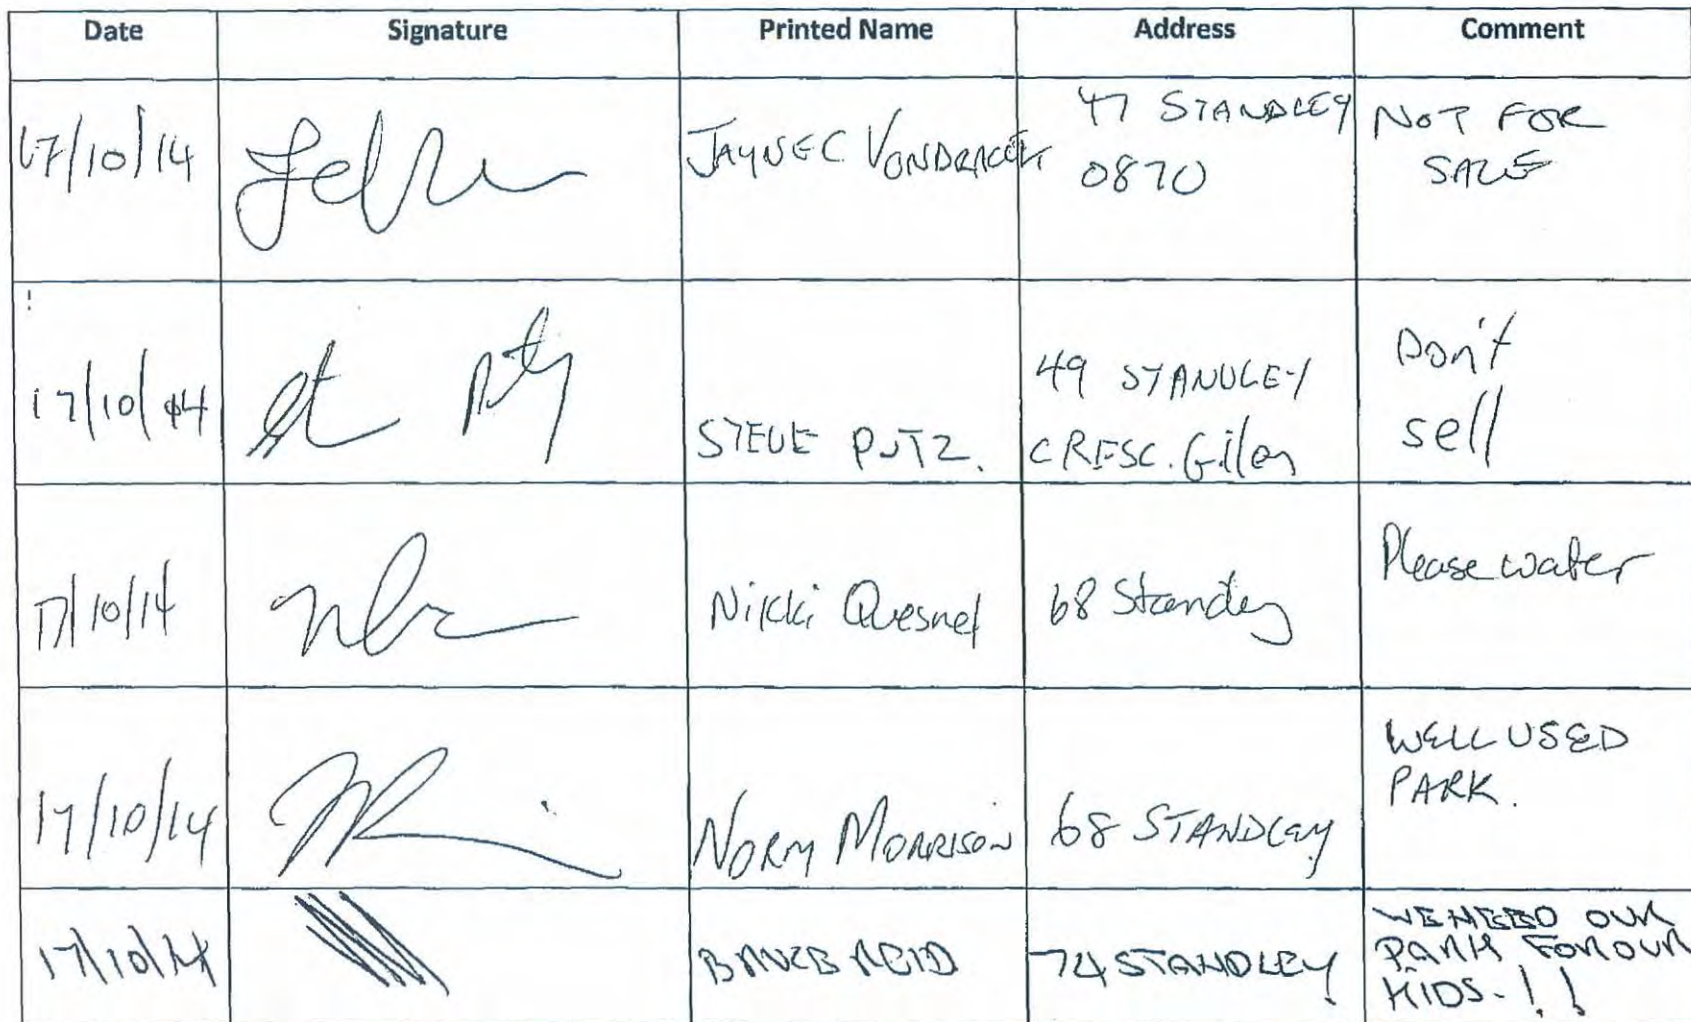 Date Signature Printed Name Address Comment
17/10/14 JAYNE C VONDRACEK 47 STANDLEY NOT FOR
0870 SALE
17/10/14 STEVE PUTZ. 49 STANDLEY Don't
CRESC. Gillen sell
17/10/14 Nikki Quesnel 68 Standley Please water
17/10/14 NORM MORRISON 68 STANDLEY WELL USED
PARK.
17/10/14 BRUCE REID 74 STANDLEY WE NEED OUR
PARK FOR OUR
KIDS-!!